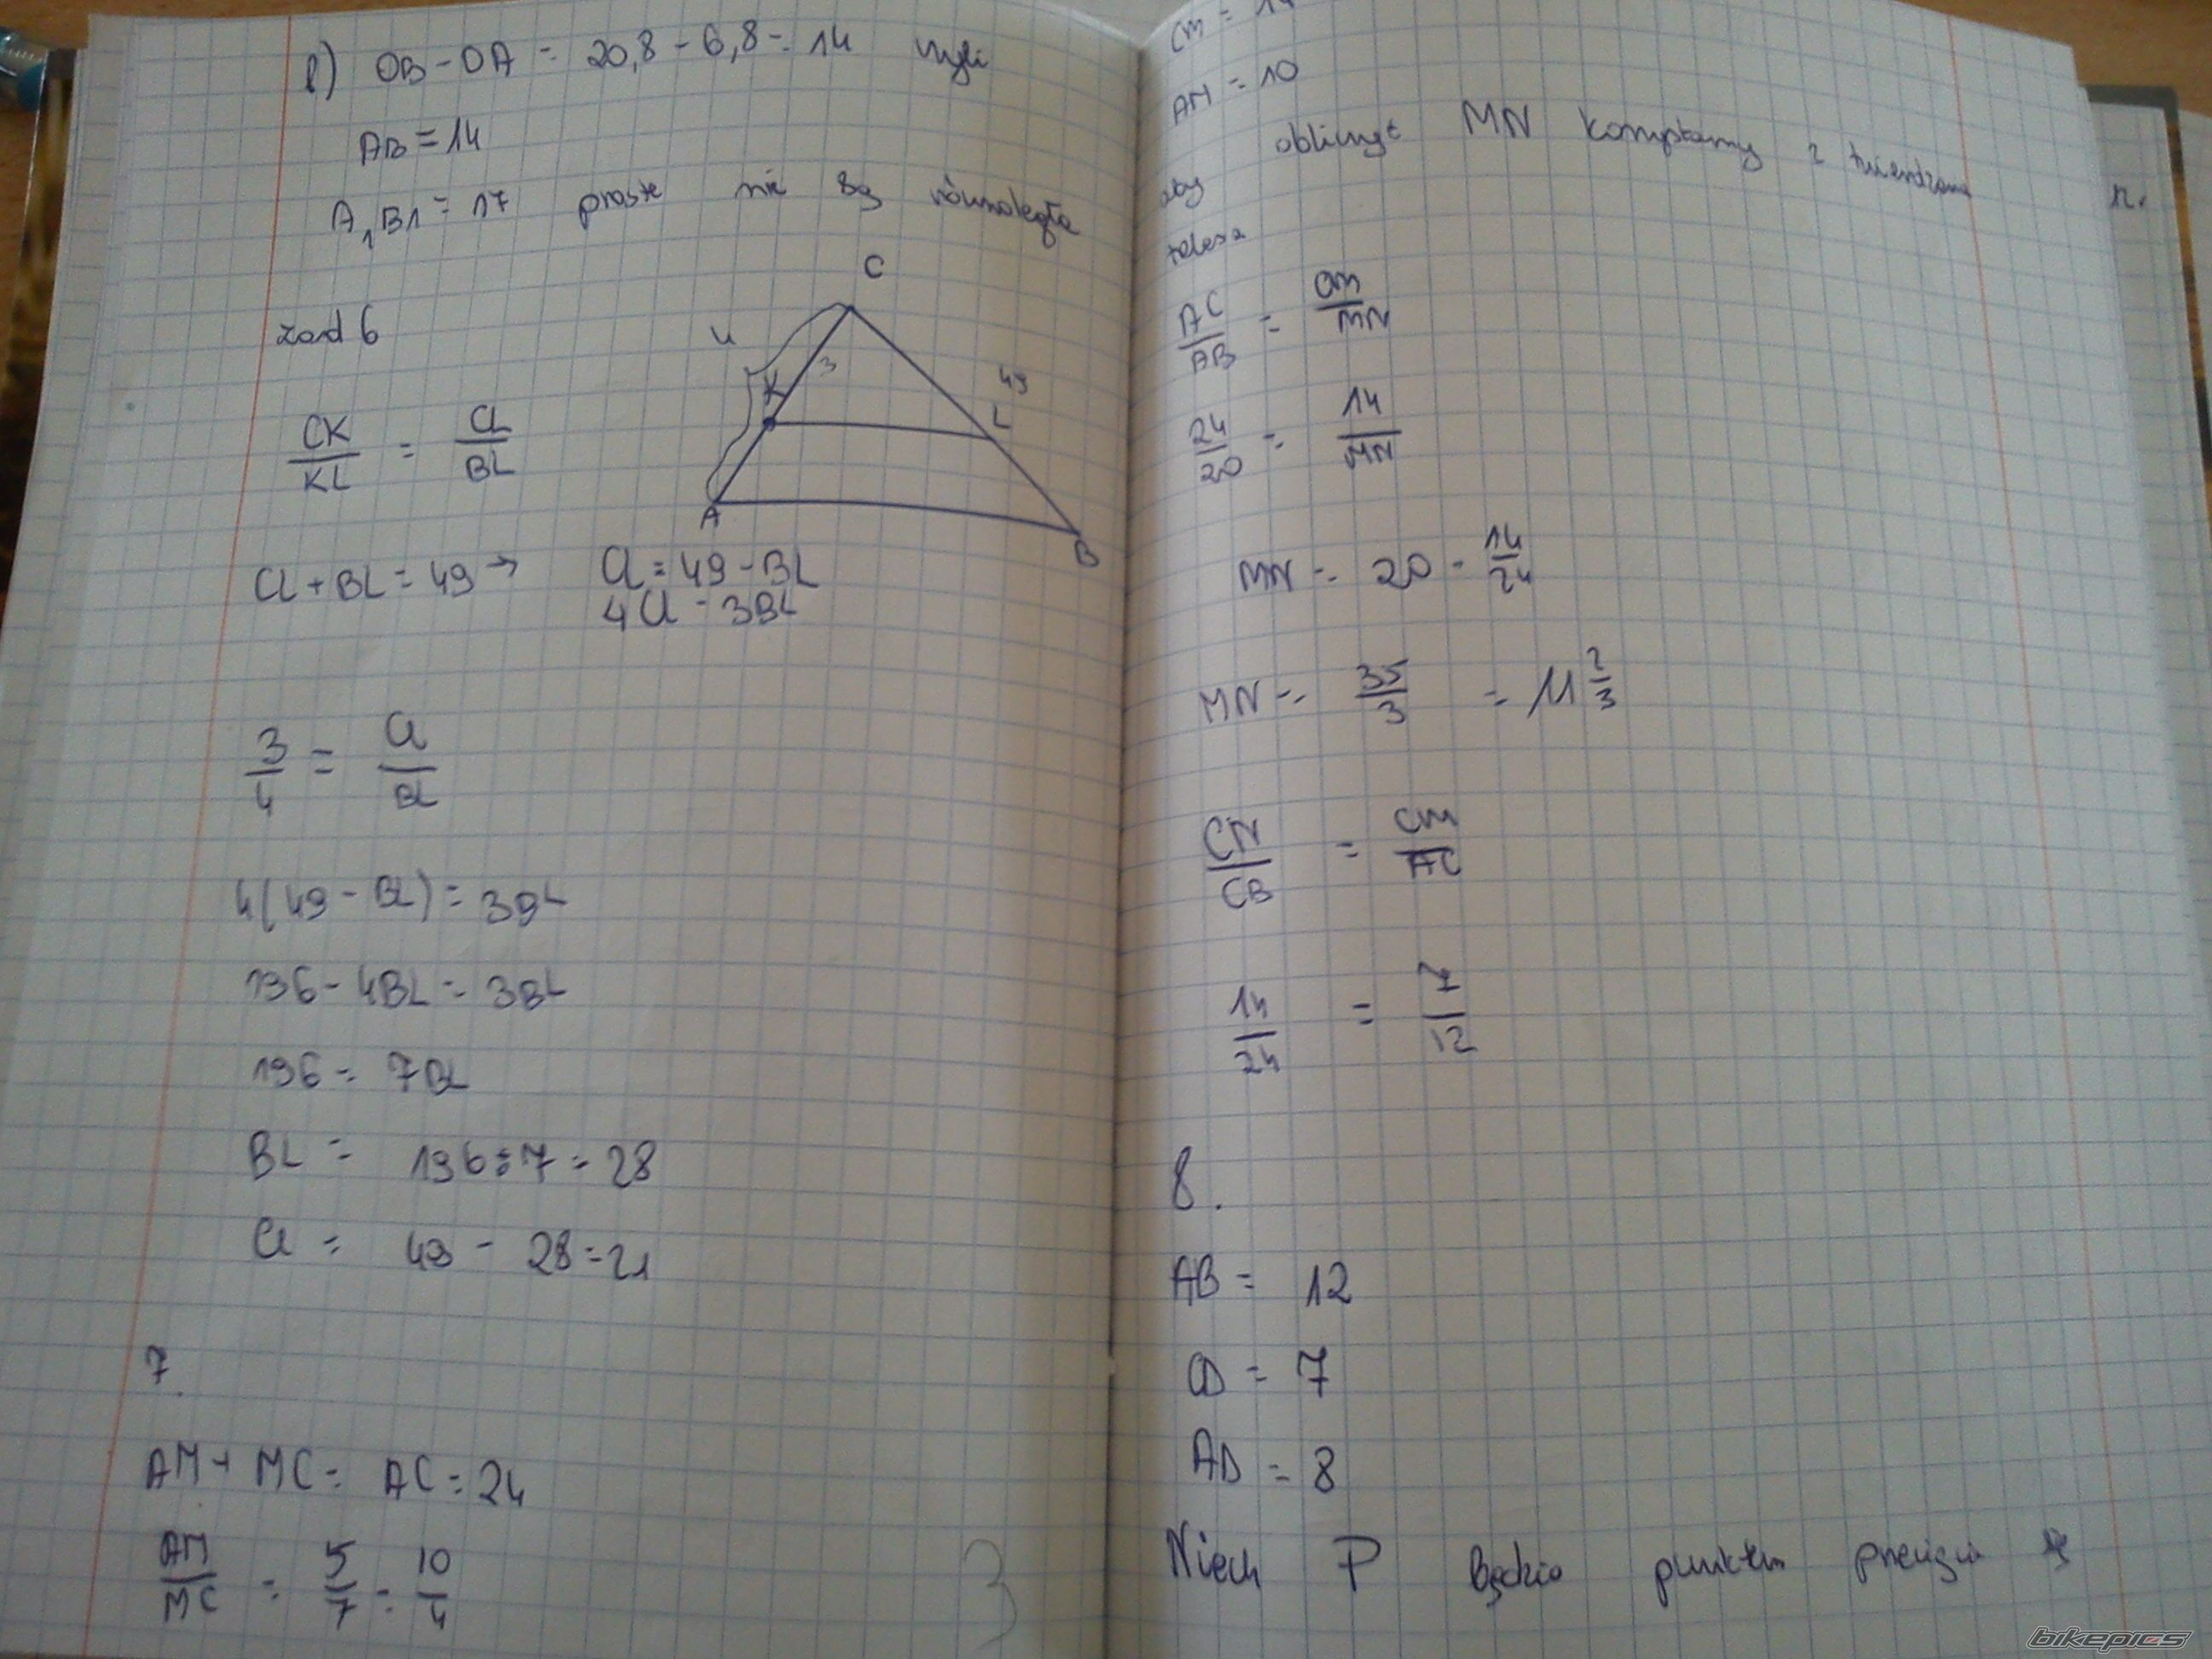 b) OB - OA = 20,8 - 6,8 = 14 czyli
AB = 14
A1B1 = 17 proste nie są równoległe
zad 6
C
4
3
K
49
L
A
B
CK/KL = CL/BL
CL + BL = 49 → CL = 49 - BL
4CL = 3BL
3/4 = CL/BL
4(49 - BL) = 3BL
196 - 4BL = 3BL
196 = 7BL
BL = 196 : 7 = 28
CL = 49 - 28 = 21
7.
AM + MC = AC = 24
AM/MC = 5/7 = 10/4
3
CM = 14
AM = 10
aby obliczyć MN korzystamy z twierdzenia
talesa
AC/AB = CM/MN
24/20 = 14/MN
MN = 20 · 14/24
MN = 35/3 = 11 2/3
CN/CB = CM/AC
14/24 = 7/12
8.
AB = 12
CD = 7
AD = 8
Niech P będzie punktem przecięcia się
bikepics